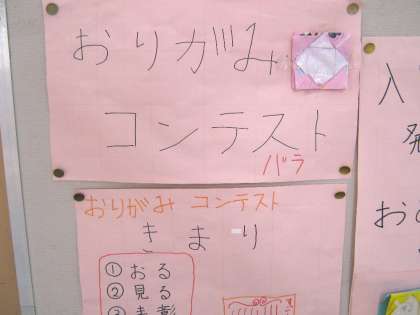 おりがみ
コンテスト
バラ
おりがみ コンテスト
きまり
① おる
② 見る
入
お